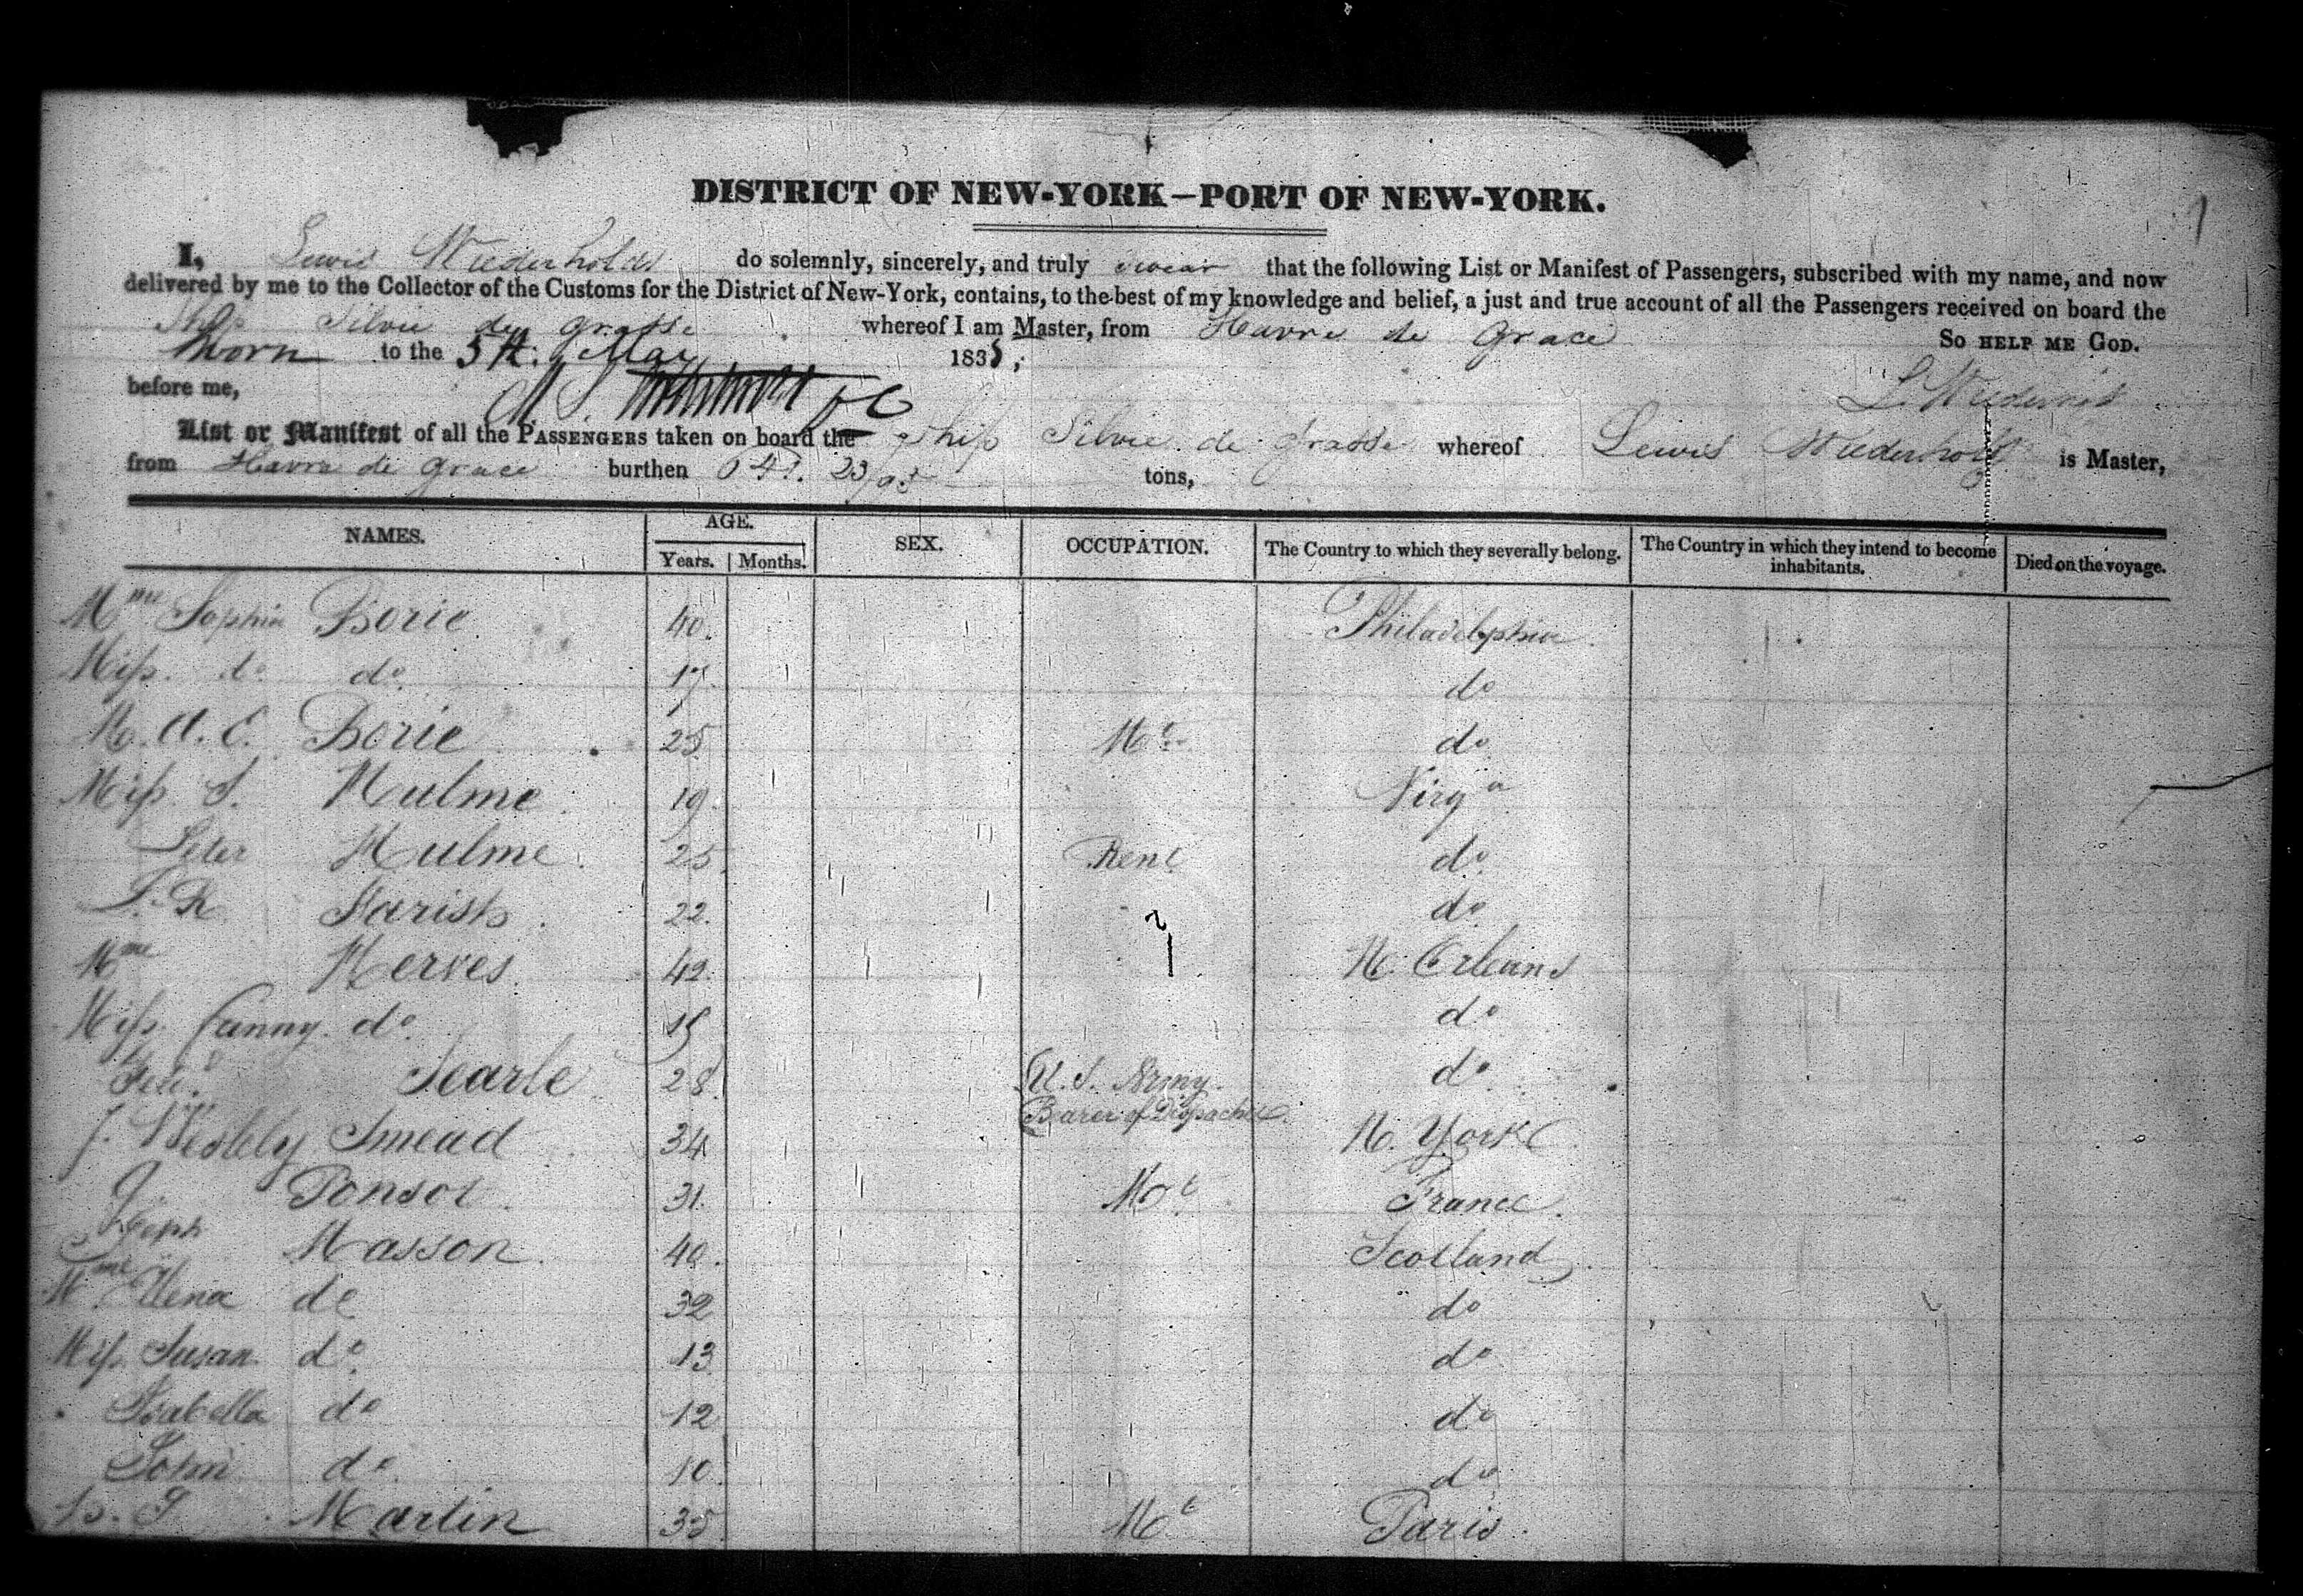 DISTRICT OF NEW-YORK—PORT OF NEW-YORK.
I, Lewis Wiederholdt do solemnly, sincerely, and truly swear that the following List or Manifest of Passengers, subscribed with my name, and now
delivered by me to the Collector of the Customs for the District of New-York, contains, to the best of my knowledge and belief, a just and true account of all the Passengers received on board the
Ship Silvie de Grasse whereof I am Master, from Havre de Grace So HELP ME GOD.
Sworn to the 5th May 1835;
before me,
List or Manifest of all the PASSENGERS taken on board the Ship Silvie de Grasse whereof Lewis Wiederholdt is Master,
from Havre de Grace burthen 641. 23/95 tons,
NAMES. AGE. Years. Months. SEX. OCCUPATION. The Country to which they severally belong. The Country in which they intend to become inhabitants. Died on the voyage.
Mme Sophia Borie 40. Philadelphia
Miss. do do 17. do
M. A. E. Borie 25 Mt do
Miss. S. Hulme 19. Virga
Peter Hulme 25 do
Farish 22. do
Mme Herves. 42. N. Orleans
Miss. Fanny. do 15 do
Searle 28 U. S. Army. do
J. Weslely Smead 34 Bearer of Dispaches N. York
J. Ponsot 31. Mt France.
Joseph Masson 40. Scotland
Mme Elena do 32 do
Miss. Susan. do 13 do
Isabella do 12 do
John do 10 do
Martin 35 Mt Paris